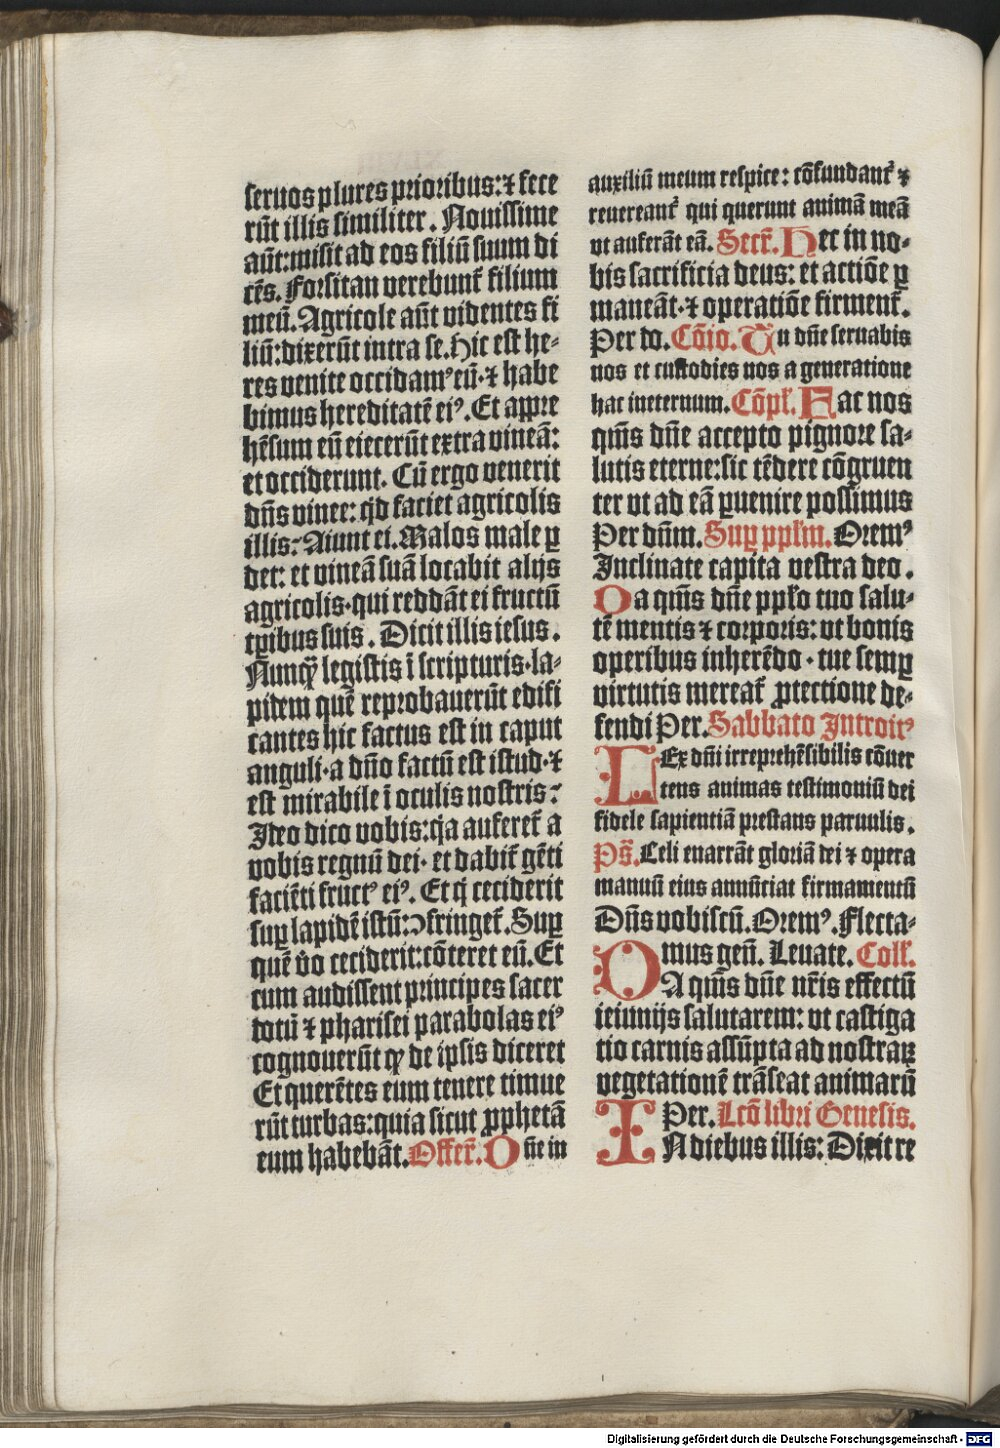 seruos plures prioribus: ⁊ fece
rūt illis similiter. Nouissime
aūt: misit ad eos filiū suum di
cēs. Forsitan verebunt᷑ filium
meū. Agricole aūt videntes fi
liū: dixerūt intra se. Hic est he-
res venite occidamꝰ eū· ⁊ habe
bimus hereditatē eiꝰ. Et appre
hēsum eū eiecerūt extra vineā:
et occiderunt. Cū ergo venerit
dn̄s vinee: qd faciet agricolis
illis? Aiunt ei. Malos male ꝑ
det: et vineā suā locabit alijs
agricolis· qui reddāt ei fructū
tꝑibus suis. Dicit illis iesus.
Nunqꝫ legistis ī scripturis· la-
pidem quē reprobauerūt edifi
cantes hic factus est in caput
anguli· a dn̄o factū est istud· ⁊
est mirabile ī oculis nostris?
Ideo dico vobis: qa auferet᷑ a
vobis regnū dei· et dabit᷑ gēti
faciēti fructꝰ eiꝰ. Et q̇ ceciderit
suꝑ lapidē istū: ↄfringet᷑. Suꝑ
quē v̊o ceciderit: cōteret eū. Et
cum audissent principes sacer
dotū ⁊ pharisei parabolas eiꝰ
cognouerūt qꝫ de ipsis diceret
Et querētes eum tenere timue
rūt turbas: quia sicut ꝓphetā
eum habebāt. Offer̄. Dn̄e in
auxiliū meum respice: cōfundant᷑ ⁊
reuereant᷑ qui querunt animā meā
vt auferāt eā. Secr̄. Hec in no-
bis sacrificia deus: et actiōe ꝑ
maneāt· ⁊ operatiōe firment᷑.
Per do. Cōio. Tu dn̄e seruabis
nos et custodies nos a generatione
hac ineternum. Cōpl̄. Fac nos
qm̄s dn̄e accepto pignore sa-
lutis eterne: sic tēdere cōgruen
ter vt ad eā ꝑuenire possimus
Per dn̄m. Suꝑ ppl̄m. Oremꝰ
Inclinate capita vestra deo.
Da qm̄s dn̄e ppl̄o tuo salu-
tē mentis ⁊ corporis: vt bonis
operibus inherēdo· tue semꝑ
virtutis mereat᷑ ꝓtectione de-
fendi Per. Sabbato Introitꝰ
LEx dn̄i irreprehēsibilis cōuer
tens animas testimoniū dei
fidele sapientiā prestans paruulis.
Ps̄. Celi enarrāt gloriā dei ⁊ opera
manuū eius annūciat firmamentū
Dn̄s vobiscū. Oremꝰ. Flecta-
mus gen̄. Leuate. Coll̄.
DA qm̄s dn̄e nr̄is effectū
ieiunijs salutarem: vt castiga
tio carnis assūpta ad nostraꝝ
vegetationē trāseat animarū
Per. Lcō libri Genesis.
IN diebus illis: Dixit re
Digitalisierung gefördert durch die Deutsche Forschungsgemeinschaft - DFG